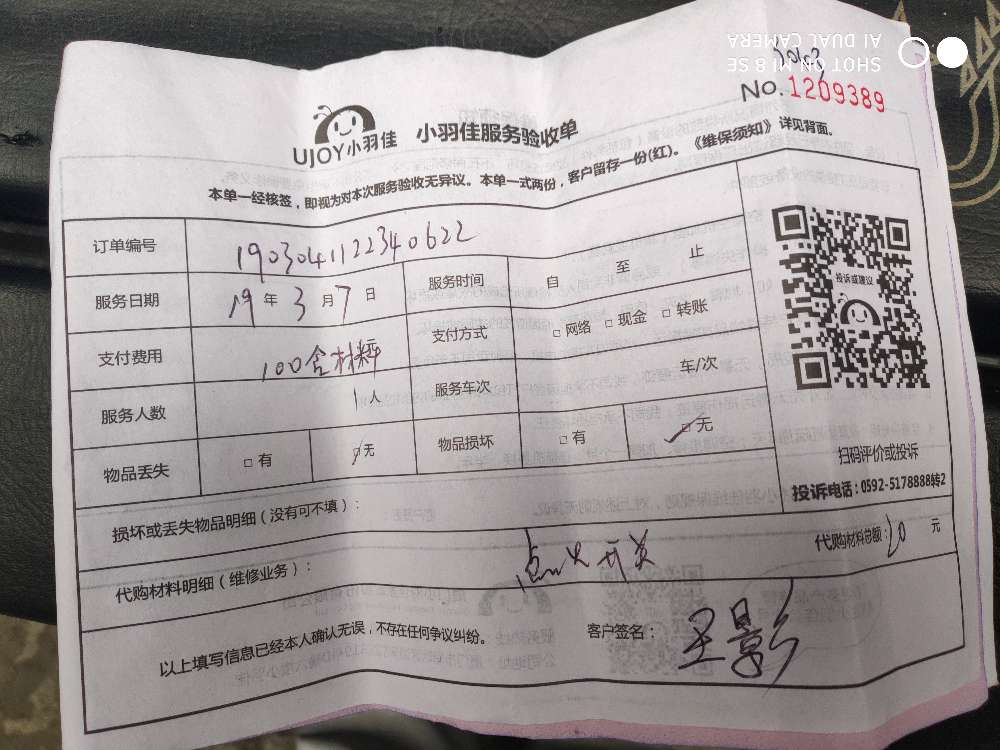 SHOT ON MI 8 SE
AI DUAL CAMERA
No.1209389
UJOY小羽佳 小羽佳服务验收单
本单一经核签，即视为对本次服务验收无异议。本单一式两份，客户留存一份(红)。《维保须知》详见背面。
订单编号 1903041122340622
服务日期 19年3月7日 服务时间 自 至 止
支付费用 100含材料 支付方式 □网络 □现金 □转账
服务人数 1人 服务车次 车/次
物品丢失 □有 □无 物品损坏 □有 □无
投诉或建议
扫码评价或投诉
投诉电话：0592-5178888转2
损坏或丢失物品明细（没有可不填）：
代购材料明细（维修业务）： 点火开关 代购材料总额：20元
以上填写信息已经本人确认无误，不存在任何争议纠纷。 客户签名：王影